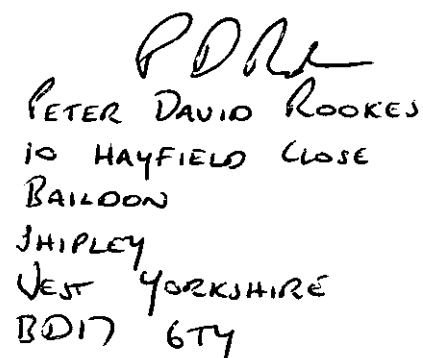 P D R
PETER DAVID ROOKES
10 HAYFIELD CLOSE
BAILDON
SHIPLEY
WEST YORKSHIRE
BD17 6TY